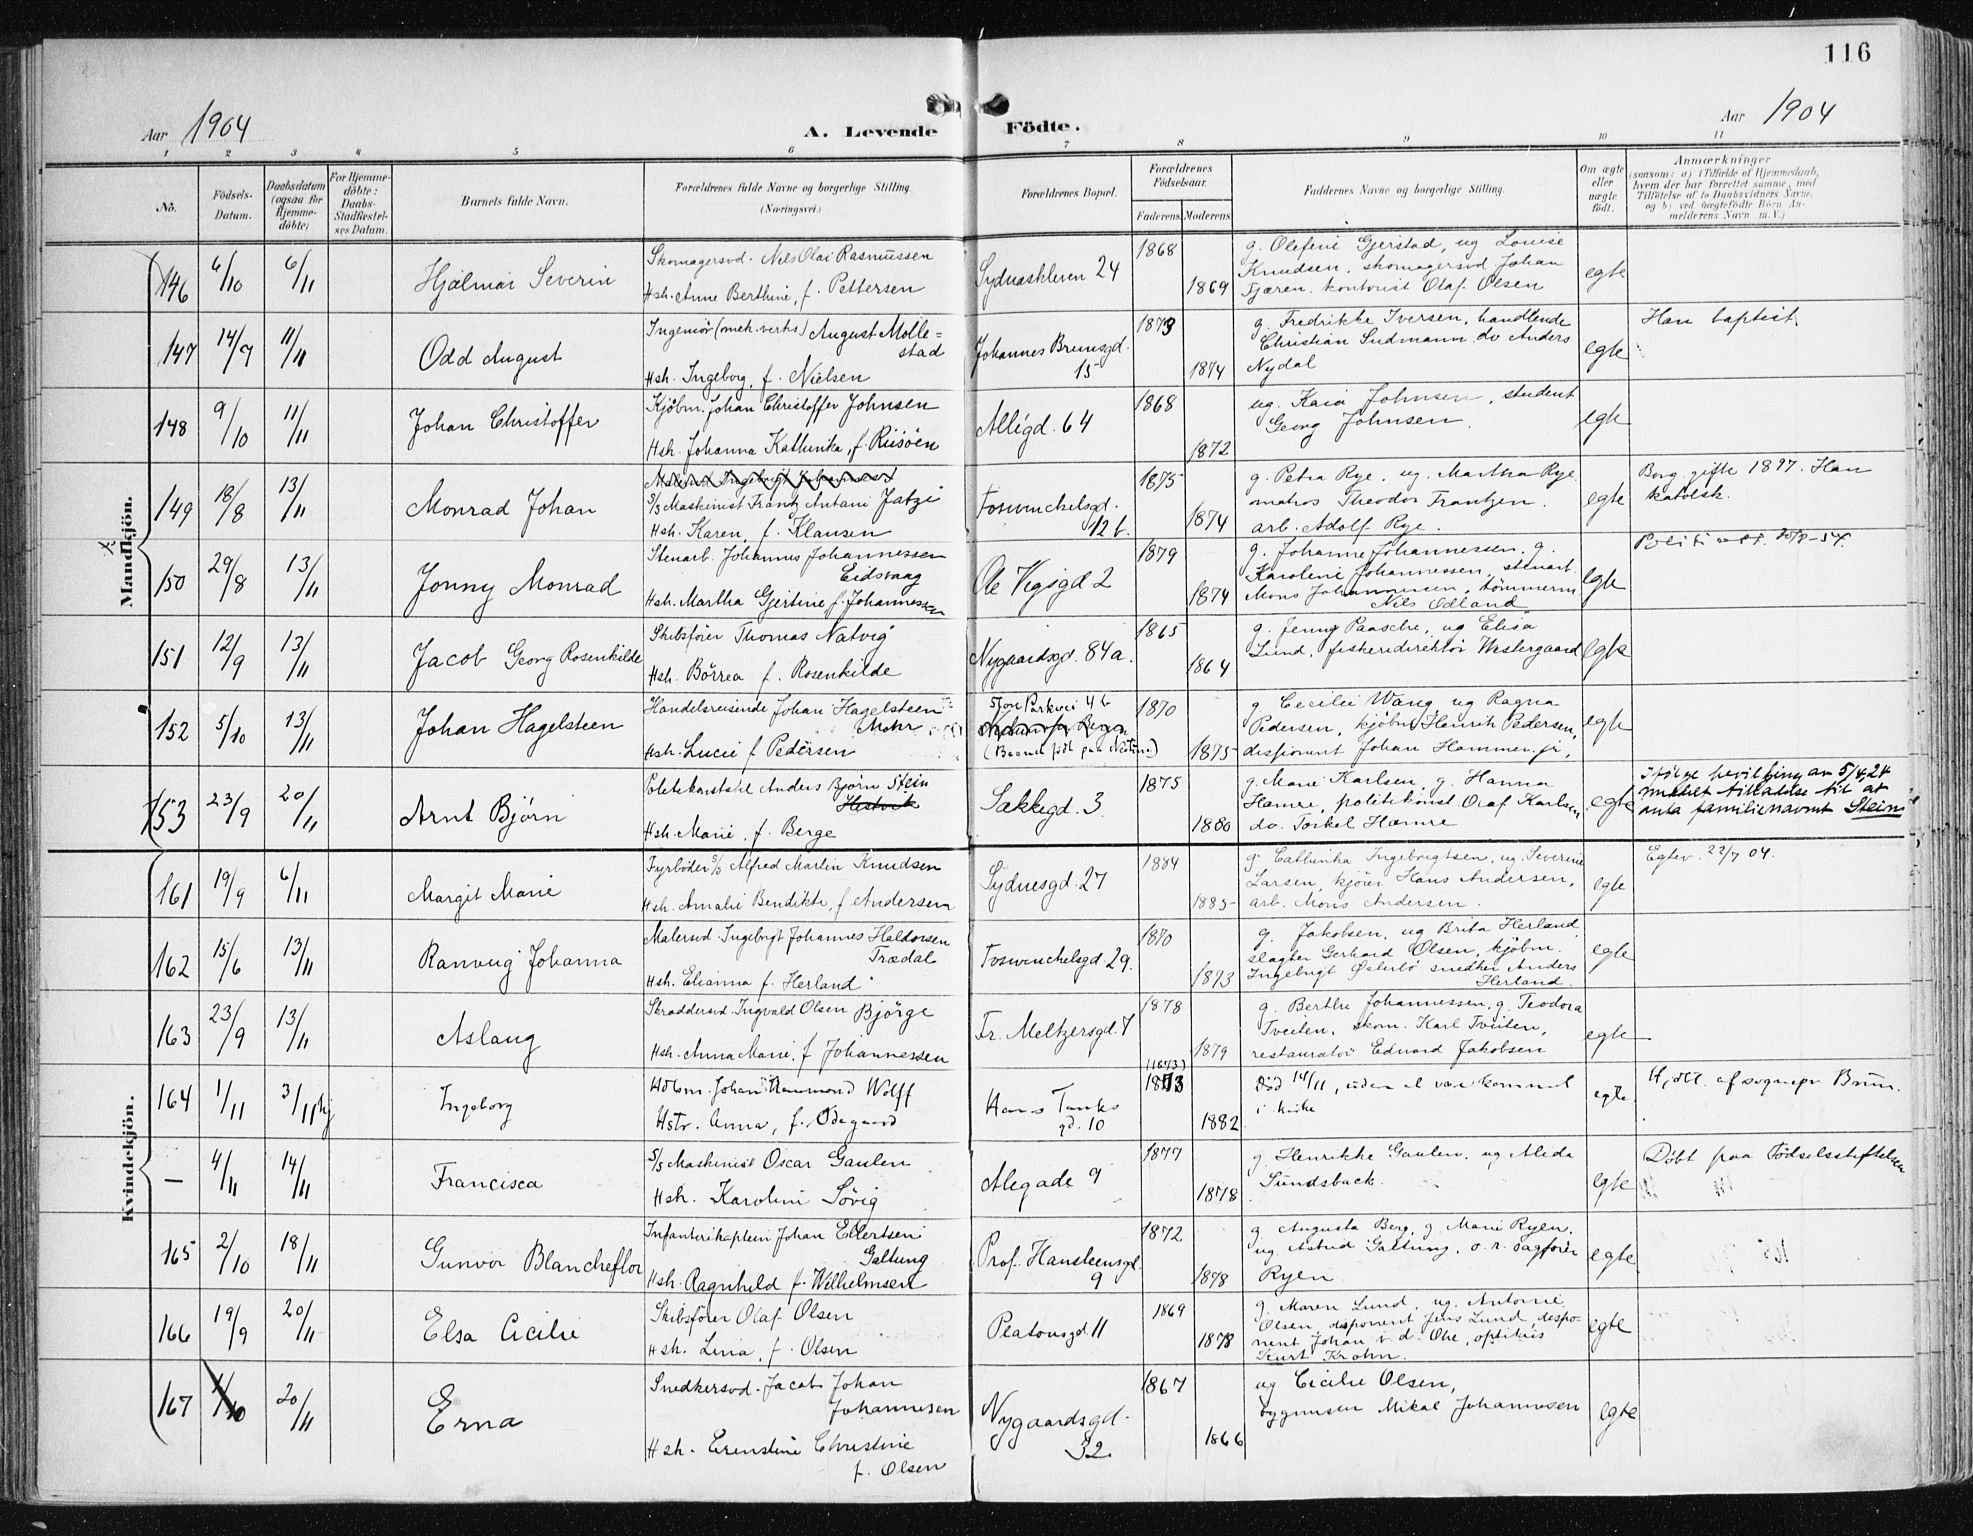 116
Aar 1904
A. Levende Födte.
Aar 1904
1 2 3 4 5 6 7 8 9 10 11
No.
Födsels-Datum.
Daabsdatum (ogsaa for Hjemme-döbte)
For Hjemme-döbte: Daabs-Stadfæstel-ses Datum.
Barnets fulde Navn.
Forældrenes fulde Navne og borgerlige Stilling (Næringsvei.)
Forældrenes Bopæl.
Forældrenes Födselsaar.
Faderens Moderens
Faddernes Navne og borgerlige Stilling.
Om ægte eller uægte födt.
Anmærkninger
(saasom: a) i Tilfælde af Hjemmedaab,
hvem der har forrettet samme, med
Tilföielse af to Daabsvidners Navne,
og b) ved uægtefödte Börn An-
melderens Navn m. V.)
Mandkjön.
146 6/10 6/11 Hjalmar Severin
Skomagersvd. Nils Olai Rasmussen
Hsh. Anne Berthine, f. Pettersen
Sydnæskleven 24 1868 1869
g. Olefine Gjerstad, ug Louise
Knudsen, skomagersvd Johan
Fjæren, kontorist Olaf Olsen
egte
147 14/9 11/11 Odd August
Ingeniör (mek. verks) August Molle=
stad
Hsh. Ingeborg, f. Nielsen
Johannes Brunsgd. 15 1873 1874
g. Fredrikke Iversen, handlende
Christian Sudmann do Anders
Nydal
egte
Han baptist
148 9/10 11/11 Johan Christoffer
Kjöbm. Johan Christoffer Johnsen
Hsh. Johanna Kathinka, f. Riisöen
Allégd. 64 1868 1872
ug. Kaia Johnsen, student
Georg Johnsen.
egte
149 18/8 13/11 Monrad Johan
S/S Maskinist Frantz Antani Jatzi
Hsh. Karen, f. Klausen
Foswinchelsgd. 12 b. 1875 1874
g. Petra Rye, ug. Martha Rye
matros Theodor Frantzen.
arb. Adolf Rye.
egte
Borg. gifte 1897. Han
katolsk.
150 29/8 13/11 Jonny Monrad
Stenarb. Johannes Johannessen
Eidsvaag
Hsh. Martha Gjertine f. Johannessen
Ole Vigsgd 2 1879 1874
g. Johanne Johannessen, g.
Karoline Johannessen, stenarb
Mons Johannessen, tömmerm
Nils Odland
egte
151 12/9 13/11 Jacob Georg Rosenkilde
Skibsförer Thomas Natvig
Hsh. Börrea f. Rosenkilde
Nygaardsgd. 84a. 1865 1864
g. Jenny Paasche, ug Elisa
Lund, fiskeridirektör Westergaard
egte
152 5/10 13/11 Johan Hagelsteen
Handelsreisende Johan Hagelsteen
Mohr
Hsh. Lucie f Pedersen
Parkvei 4 b 1870 1875
g Cecilie Wang ug Ragna
Pedersen, kjöbm Henrik Pedersen,
disponent Johan Hammer jr,
egte
153 23/9 20/11 Arnt Björn
Politikonstabel Anders Björn Stein
Hsh. Marie, f. Berge
Sakkegd. 3. 1875 1880
g. Marie Karlsen, g. Hanna
Hamre, politikonst Olaf Karlsen
do. Torkel Hamre
egte
Ifölge bevilling av 5/4 24
meddelt tilladelse til at
anta familienavnet Stein
Kvindekjön.
161 19/9 6/11 Margit Marie
Fyrböder S/S Alfred Martin Knudsen
Hsh. Amalie Bendikte, f Andersen
Sydnesgd. 27 1884 1885
g. Cathinka Ingebrigtsen, ug. Severine
Larsen, kjörer Hans Andersen,
arb. Mons Andersen.
egte
Egtev. 22/7 04.
162 15/6 13/11 Ranveig Johanna
Malersvd. Ingebrigt Johannes Haldorsen
Trædal
Hsh. Elianna f. Herland
Foswinchelsgd. 29. 1870 1873
g. Jakobsen, ug Brita Herland
slagter Gerhard Olsen, kjöbm.
Ingebrigt Österbö snedker Anders
Herland.
egte
163 23/9 13/11 Aslaug
Skræddersvd. Ingvald Olsen Björge
Hsh. Anna Marie, f Johannessen
Fr. Meltzersgd. 7 1878 1879
g. Berthe Johannessen, g. Teodora
Tveiten, skom. Karl Tveiten,
restauratör Edvard Jakobsen
egte
164 1/11 3/11 hj Ingeborg
Johan Wolff
Hstr. Anna, f. Ödegaard
Hans Tanks gd. 10 (1873) 1873 1882
Död 14/11, uden at være kommet
i kirke
egte
Hj. dbt. af sognepr. Brun.
— 4/11 14/11 Francisca
S/S Maskinist Oscar Gaulen
Hsh. Karoline Sövig
Alegade 9 1877 1878
g Henrikke Gaulen, ug Alida
Sundsback.
egte
Döbt paa Födselsstiftelsen
165 2/10 18/11 Gunvor Blancheflor
Infanterikaptein Johan Ellertsen
Galtung
Hsh. Ragnhild f. Wilhelmsen
Prof. Hansteensgd. 9 1872 1878
g. Augusta Berg, g. Marie Ryen,
ug Astrid Galtung, o. r. sagförer
Ryen
egte
166 19/9 20/11 Elsa Cicilie
Skibsförer Olaf Olsen
Hsh. Lina, f. Olsen
Platousgd 11 1869 1878
g. Maren Lund, ug. Antonie
Olsen, disponent Jens Lund, dispo-
nent Johan v. d. Ohe, optikus
Kurt Krohn.
egte
167 1/10 20/11 Erna
Snedkersvd. Jacob Johan
Johannesen
Hsh. Ernstine Christine
f. Olsen
Nygaardsgd. 32 1867 1866
ug Cicilie Olsen,
bygmester Mikal Johannesen
egte